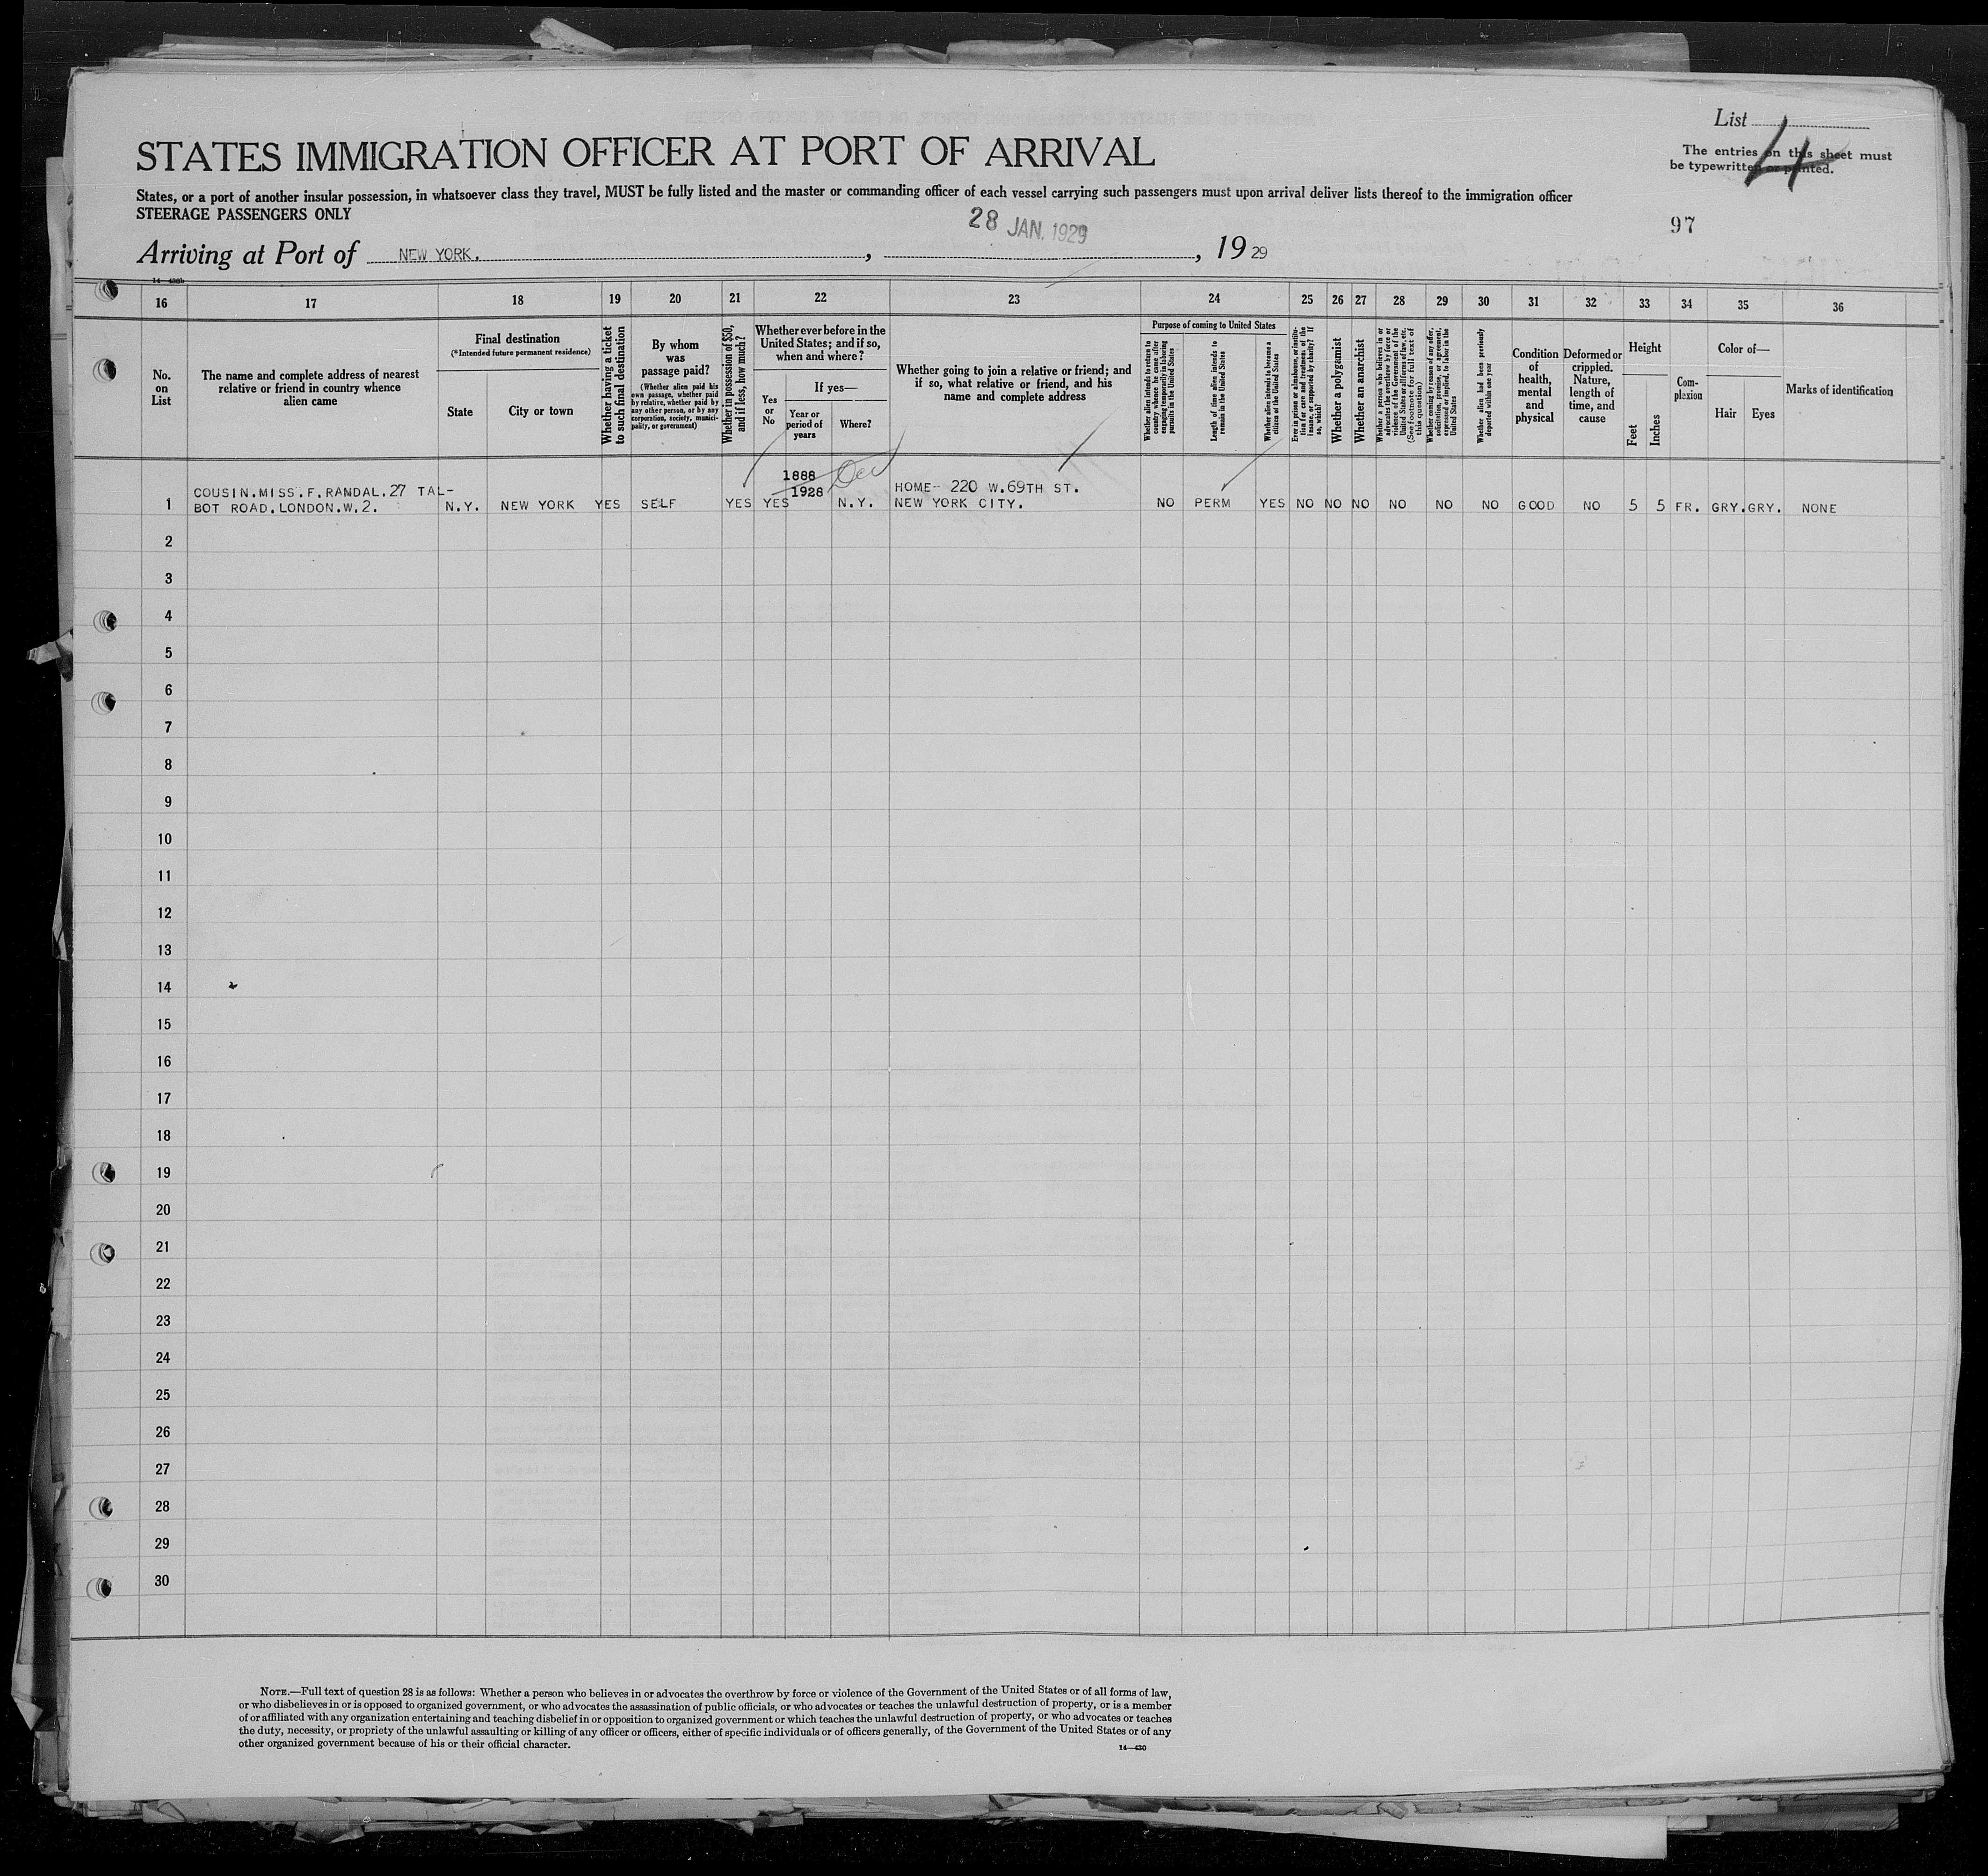 List
4
The entries on this sheet must
be typewritten or printed.
STATES IMMIGRATION OFFICER AT PORT OF ARRIVAL
States, or a port of another insular possession, in whatsoever class they travel, MUST be fully listed and the master or commanding officer of each vessel carrying such passengers must upon arrival deliver lists thereof to the immigration officer
STEERAGE PASSENGERS ONLY
28 JAN. 1929
97
Arriving at Port of NEW YORK. , , 19 29
14—430b
16 17 18 19 20 21 22 23 24 25 26 27 28 29 30 31 32 33 34 35 36
No.
on
List
The name and complete address of nearest
relative or friend in country whence
alien came
Final destination
(*Intended future permanent residence)
State
City or town
Whether having a ticket
to such final destination
By whom
was
passage paid?
(Whether alien paid his
own passage, whether paid
by relative, whether paid by
any other person, or by any
corporation, society, munici-
pality, or government)
Whether in possession of $50,
and if less, how much?
Whether ever before in the
United States; and if so,
when and where?
Yes
or
No
If yes—
Year or
period of
years
Where?
Whether going to join a relative or friend; and
if so, what relative or friend, and his
name and complete address
Purpose of coming to United States
Whether alien intends to return to
country whence he came after
engaging temporarily in laboring
pursuits in the United States
Length of time alien intends to
remain in the United States
Whether alien intends to become a
citizen of the United States
Ever in prison or almshouse, or institu-
tion for care and treatment of the
insane, or supported by charity? If
so, which?
Whether a polygamist
Whether an anarchist
Whether a person who believes in or
advocates the overthrow by force or
violence of the Government of the
United States or all forms of law, etc.
(See footnote for full text of
this question)
Whether coming by reason of any offer,
solicitation, promise, or agreement,
expressed or implied, to labor in the
United States
Whether alien had been previously
deported within one year
Condition
of
health,
mental
and
physical
Deformed or
crippled.
Nature,
length of
time, and
cause
Height
Feet
Inches
Com-
plexion
Color of—
Hair
Eyes
Marks of identification
1888 Dec
COUSIN.MISS.F.RANDAL.27 TAL- 1928 HOME- 220 W.69TH ST.
1 BOT ROAD.LONDON.W.2. N.Y. NEW YORK YES SELF YES YES N.Y. NEW YORK CITY. NO PERM YES NO NO NO NO NO NO GOOD NO 5 5 FR. GRY. GRY. NONE
2
3
4
5
6
7
8
9
10
11
12
13
14
15
16
17
18
19
20
21
22
23
24
25
26
27
28
29
30
NOTE.—Full text of question 28 is as follows: Whether a person who believes in or advocates the overthrow by force or violence of the Government of the United States or of all forms of law,
or who disbelieves in or is opposed to organized government, or who advocates the assassination of public officials, or who advocates or teaches the unlawful destruction of property, or is a member
of or affiliated with any organization entertaining and teaching disbelief in or opposition to organized government or which teaches the unlawful destruction of property, or who advocates or teaches
the duty, necessity, or propriety of the unlawful assaulting or killing of any officer or officers, either of specific individuals or of officers generally, of the Government of the United States or of any
other organized government because of his or their official character.
14—430